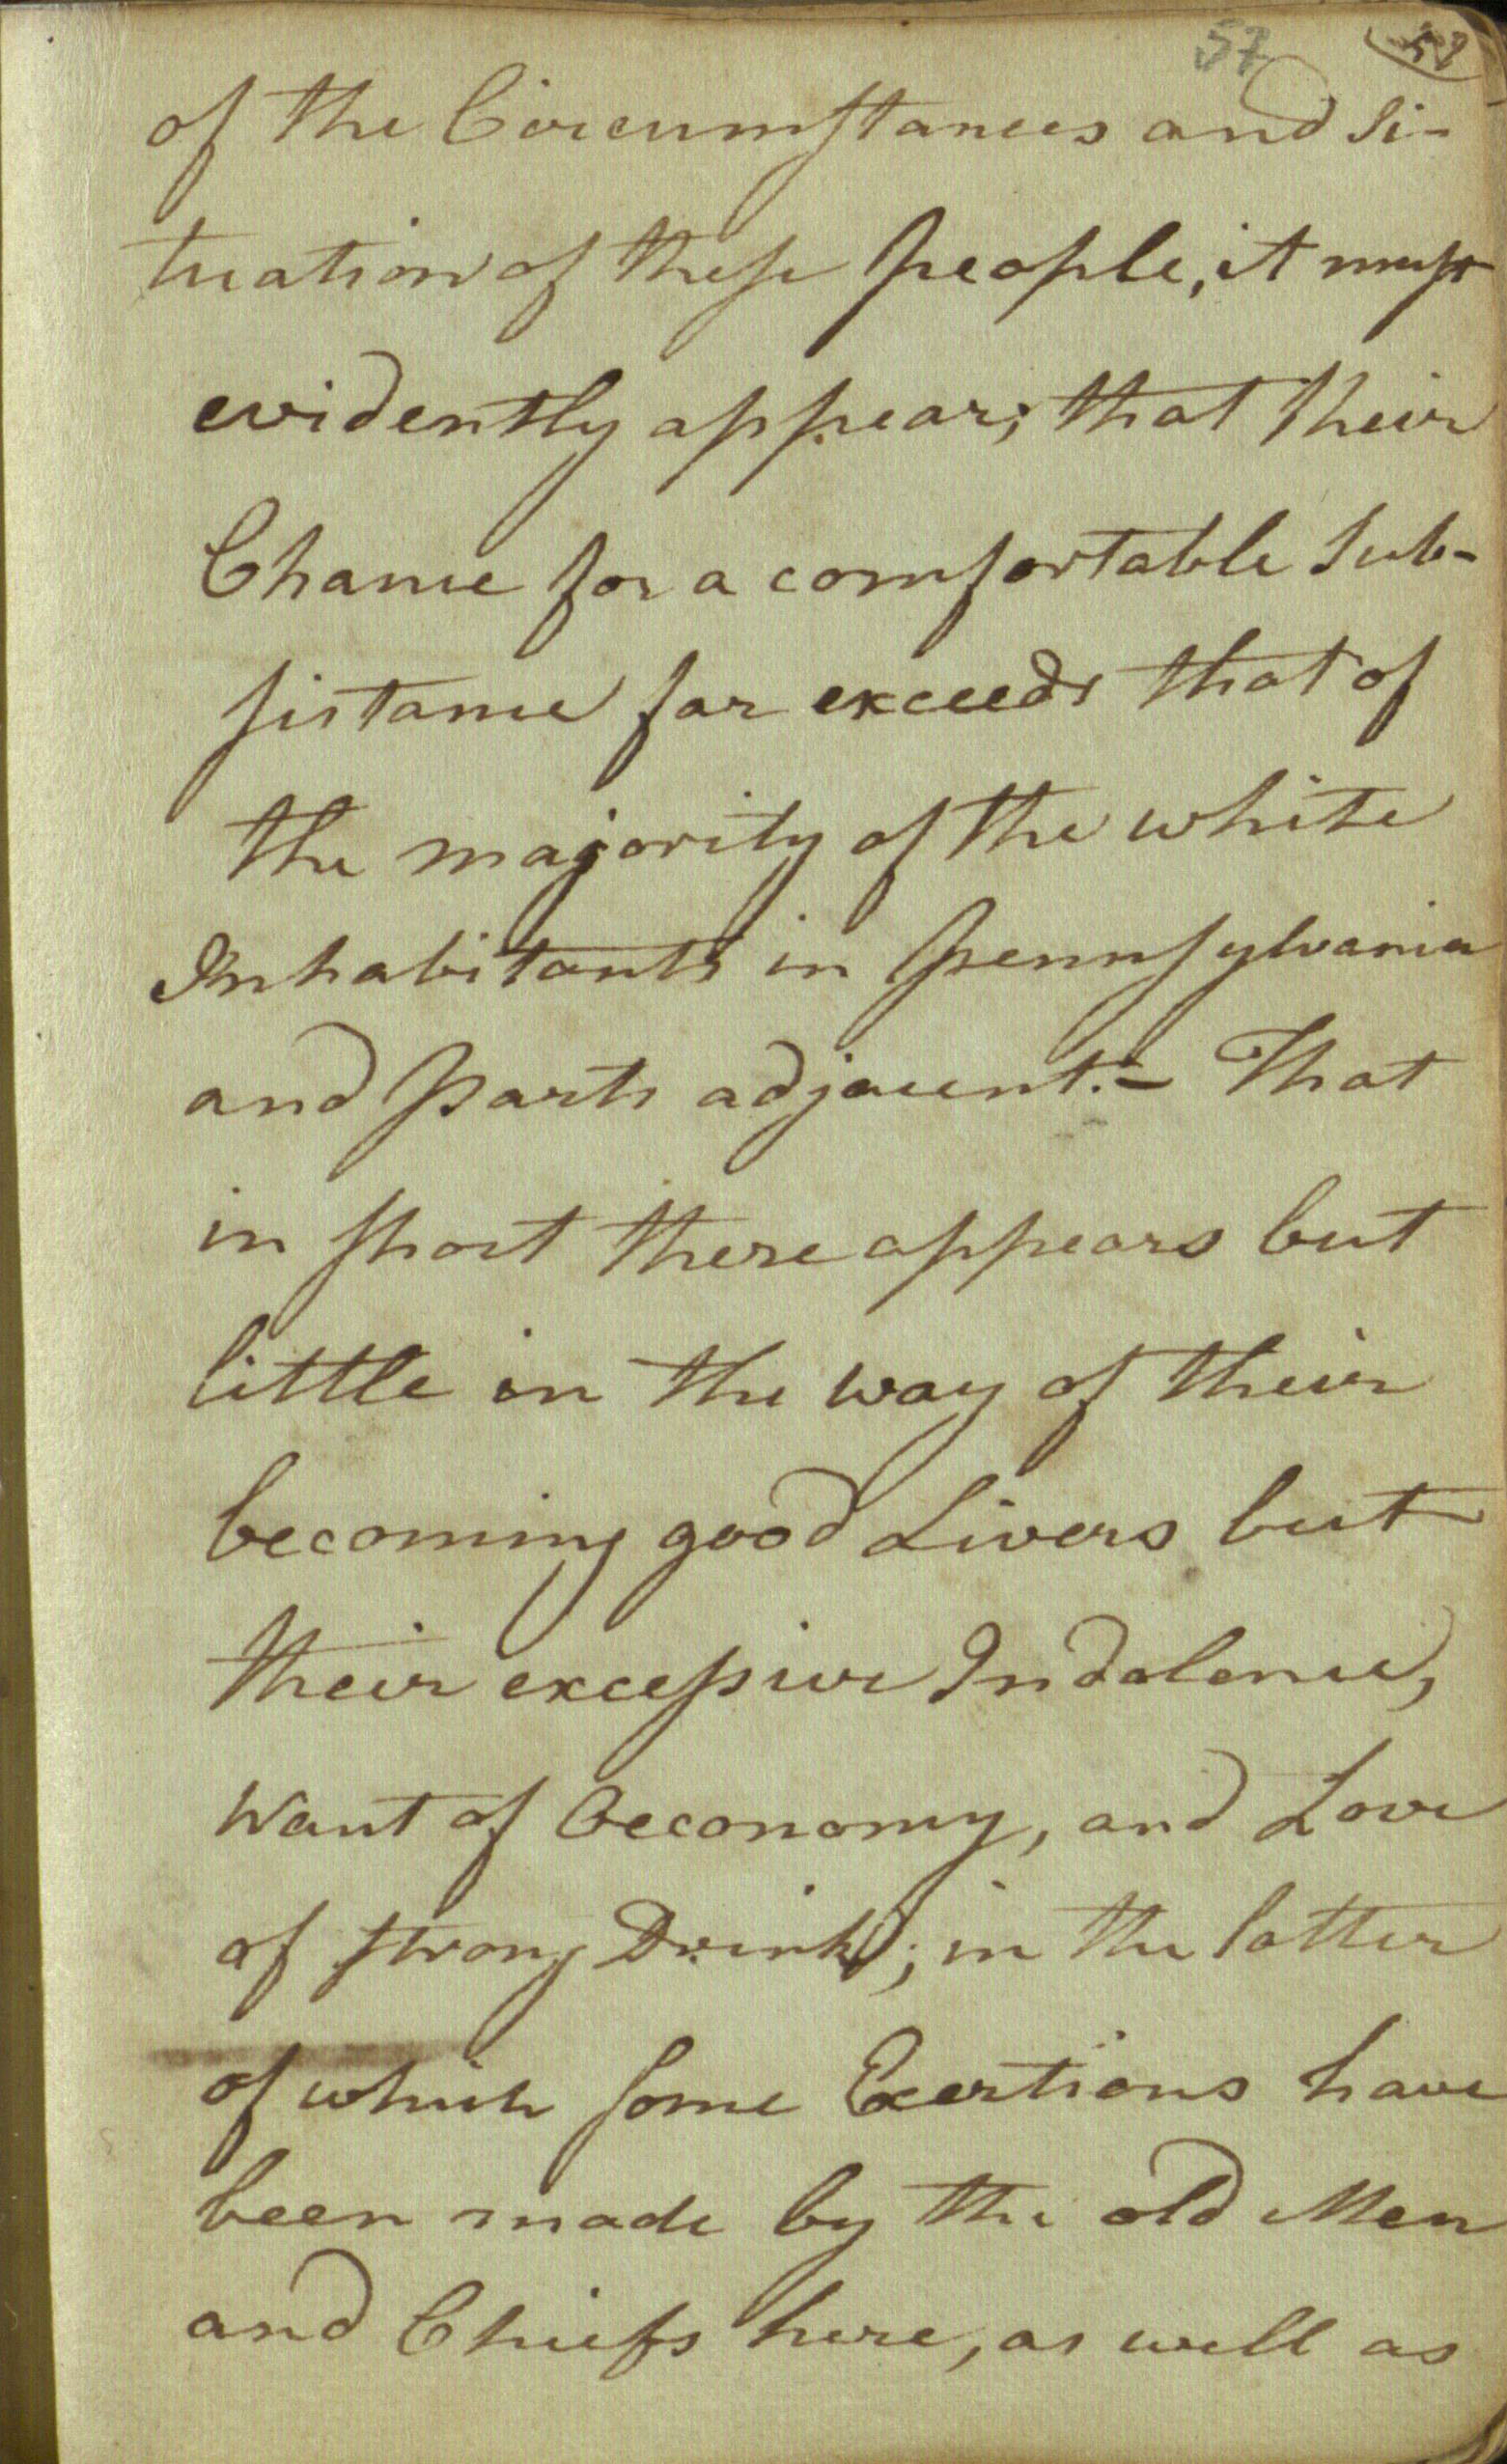 57
of the Circumstances and Si-
tuation of these People, it must
evidently appear; that their
Chance for a comfortable Sub-
sistance far exceeds that of
the majority of the white
Inhabitants in Pennsylvania
and Parts adjacent.- That
in short there appears but
little in the way of their
becoming good Livers but
their excessive Indolence,
Want of Oeconomy, and Love
of strong Drink; in the latter
of which some Exertions have
been made by the old Men
and Chiefs here, as well as